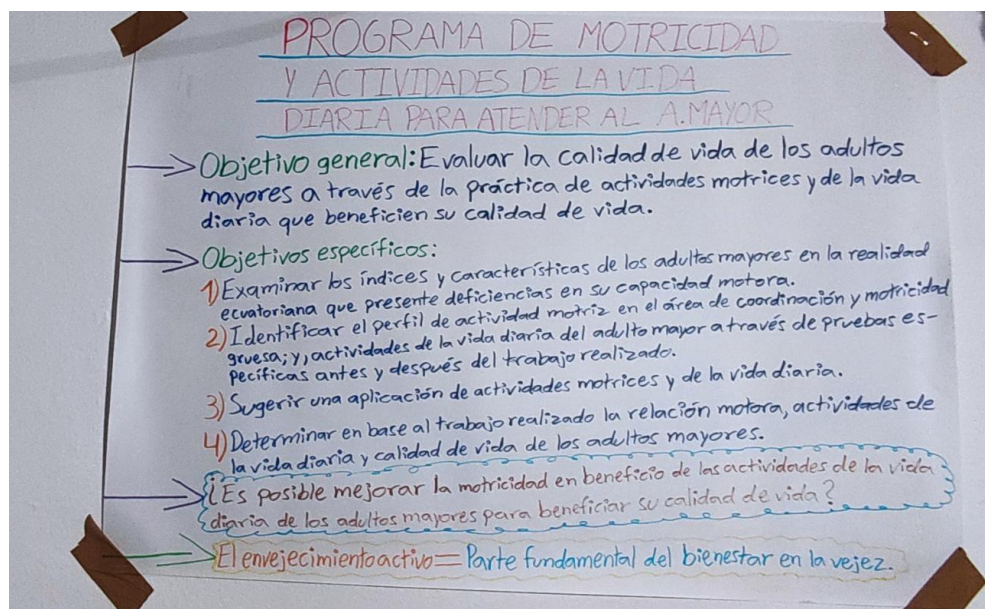 PROGRAMA DE MOTRICIDAD
Y ACTIVIDADES DE LA VIDA
DIARIA PARA ATENDER AL A.MAYOR
Objetivo general: Evaluar la calidad de vida de los adultos
mayores a través de la práctica de actividades motrices y de la vida
diaria que beneficien su calidad de vida.
Objetivos específicos:
1) Examinar los índices y características de los adultos mayores en la realidad
ecuatoriana que presente deficiencias en su capacidad motora.
2) Identificar el perfil de actividad motriz en el área de coordinación y motricidad
gruesa; y, actividades de la vida diaria del adulto mayor a través de pruebas es-
pecíficas antes y después del trabajo realizado.
3) Sugerir una aplicación de actividades motrices y de la vida diaria.
4) Determinar en base al trabajo realizado la relación motora, actividades de
la vida diaria y calidad de vida de los adultos mayores.
¿Es posible mejorar la motricidad en beneficio de las actividades de la vida
diaria de los adultos mayores para beneficiar su calidad de vida?
El envejecimiento activo = Parte fundamental del bienestar en la vejez.